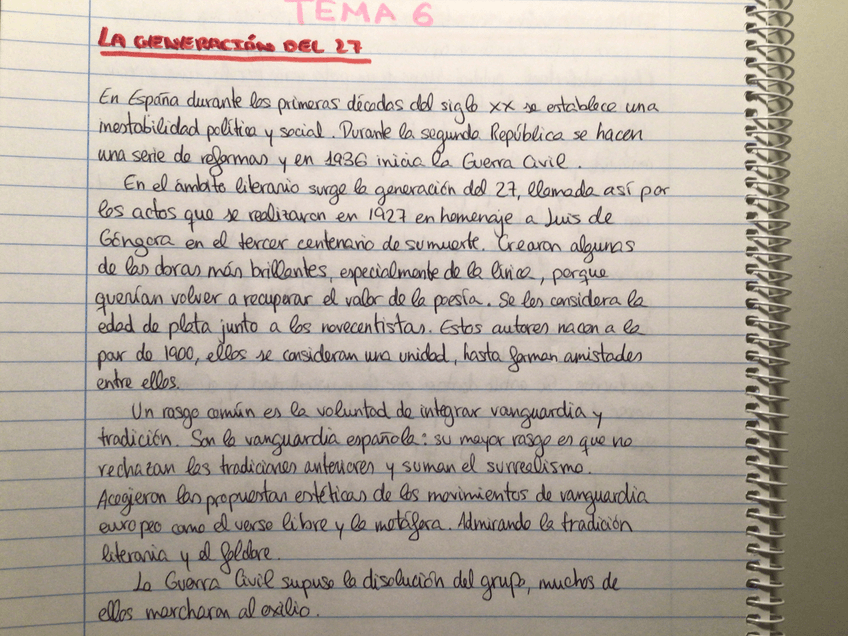 TEMA 6
LA GENERACIÓN DEL 27
En España durante las primeras décadas del siglo XX se establece una
inestabilidad política y social. Durante la segunda República se hacen
una serie de reformas y en 1936 inicia la Guerra Civil.
En el ámbito literario surge la generación del 27, llamada así por
los actos que se realizaron en 1927 en homenaje a Luis de
Góngora en el tercer centenario de su muerte. Crearon algunas
de las obras más brillantes, especialmente de la lírica, porque
querían volver a recuperar el valor de la poesía. Se les considera la
edad de plata junto a los novecentistas. Estos autores nacen a la
par de 1900, ellos se consideran una unidad, hasta forman amistades
entre ellos.
Un rasgo común es la voluntad de integrar vanguardia y
tradición. Son la vanguardia española: su mayor rasgo es que no
rechazan las tradiciones anteriores y suman el surrealismo.
Acogieron las propuestas estéticas de los movimientos de vanguardia
europeo como el verso libre y la metáfora. Admirando la tradición
literaria y el folclore.
La Guerra Civil supuso la disolución del grupo, muchos de
ellos marcharon al exilio.